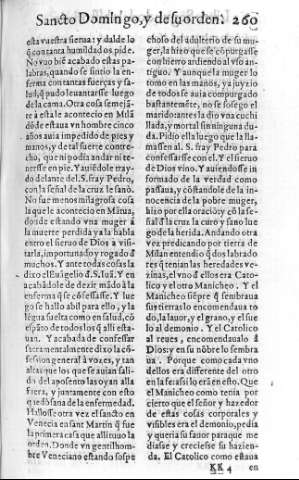 Sancto Domingo, y de su orden. 260
esta vuestra sierua: y dalde lo
q̃ con tanta humildad os pide.
No vuo biẽ acabado estas pa-
labras, quando se sintio la en-
ferma con tantas fuerças y sa-
lud, q̃ pudo leuantarse luego
de la cama. Otra cosa semejã-
te à esta le acontecio en Milã
dõde estaua vn hombre cinco
años auia impedido de pies y
manos, y de tal suerte contre-
cho, que ni podia andar ni te-
nerse en pie. Y auiẽdole tray-
do delante del S. fray Pedro,
con la señal de la cruz le sanò.
No fue menos milagrosa cosa
la que le acontecio en Mãtua,
donde estando vna muger à
la muerte perdida ya la habla
entro el sieruo de Dios à visi-
tarla, importunado y rogado d̃
muchos. Y ante todas cosas la
dixo el Euãgelio d̃ S. Iuã. Y en
acabãdole de dezir mãdò à la
enferma q̃ se cõfessasse. Y lue
go se hallo abil para ello, y la
lẽgua suelta como en salud, cõ
espãto de todos los q̃ alli esta-
uan. Y acabada de confessar
sacramentalmente dixo la cõ-
fession general à vozes, y tan
altas que los que se auian salido
del aposento las oyan alla
fuera, y juntamente con esto
quedò sana de la enfermedad.
Hallosse otra vez el sancto en
Venecia en sant Martin q̃ fue
la primera casa que alli tuuo la
orden. Donde vn gentilhombre
Veneciano estando sospe
choso del adulterio de su mu-
ger, la hizo que se cõpurgasse
con hierro ardiendo al vso an-
tiguo. Y aunque la muger lo
tomo en las manos, y a juyzio
de todos se auia como purgado
bastantemẽte, no se sosego el
marido: antes la dio vna cuchi
llada, y mortal sin ninguna du-
da. Pidio ella luego que la lla-
massen al S. fray Pedro para
confessarse con el. Y el sieruo
de Dios vino. Y auiendose in
formado de la verdad como
passaua, y cõstandole de la in-
nocencia de la pobre muger,
hizo por ella oracion y cõ la se-
ñal d̃ la cruz la curo y sano lue
go de la herida. Andando otra
vez predicando por tierra de
Milan entendio q̃ dos labrado
res q̃ tenian las heredades ve-
zinas, el vno d̃ ellos era Cato-
lico y el otro Manicheo. Y el
Manicheo siẽpre q̃ sembraua
su tierra lo encomendaua to
do, la lauor, y el grano, y el sue
lo al demonio. Y el Catolico
al reues, encomendaualo à
Dios: y en su nõbre lo sembra
ua. Porque como cada vno
dellos era differente del otro
en la fe assi lo erã en esto. Que
el Manicheo como tenia por
cierto que el señor y hazedor
de estas cosas corporales y
visibles era el demonio, pedia
y queria su fauor para que me
diasse y creciesse su hazien-
da. El Catolico como estaua
KK 4 en